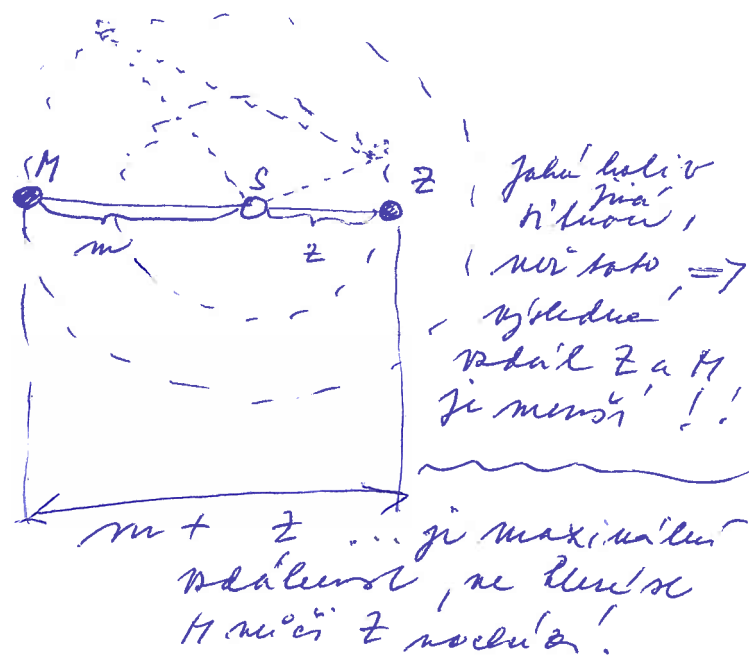 M
S
Z
m
z
Jaká koliv
jiná
situace,
než tato, =>
výsledná
vzdál Z a M
je menší !!
m + Z ... je maximální
vzdálenost, ve které se
M vůči Z nachází!